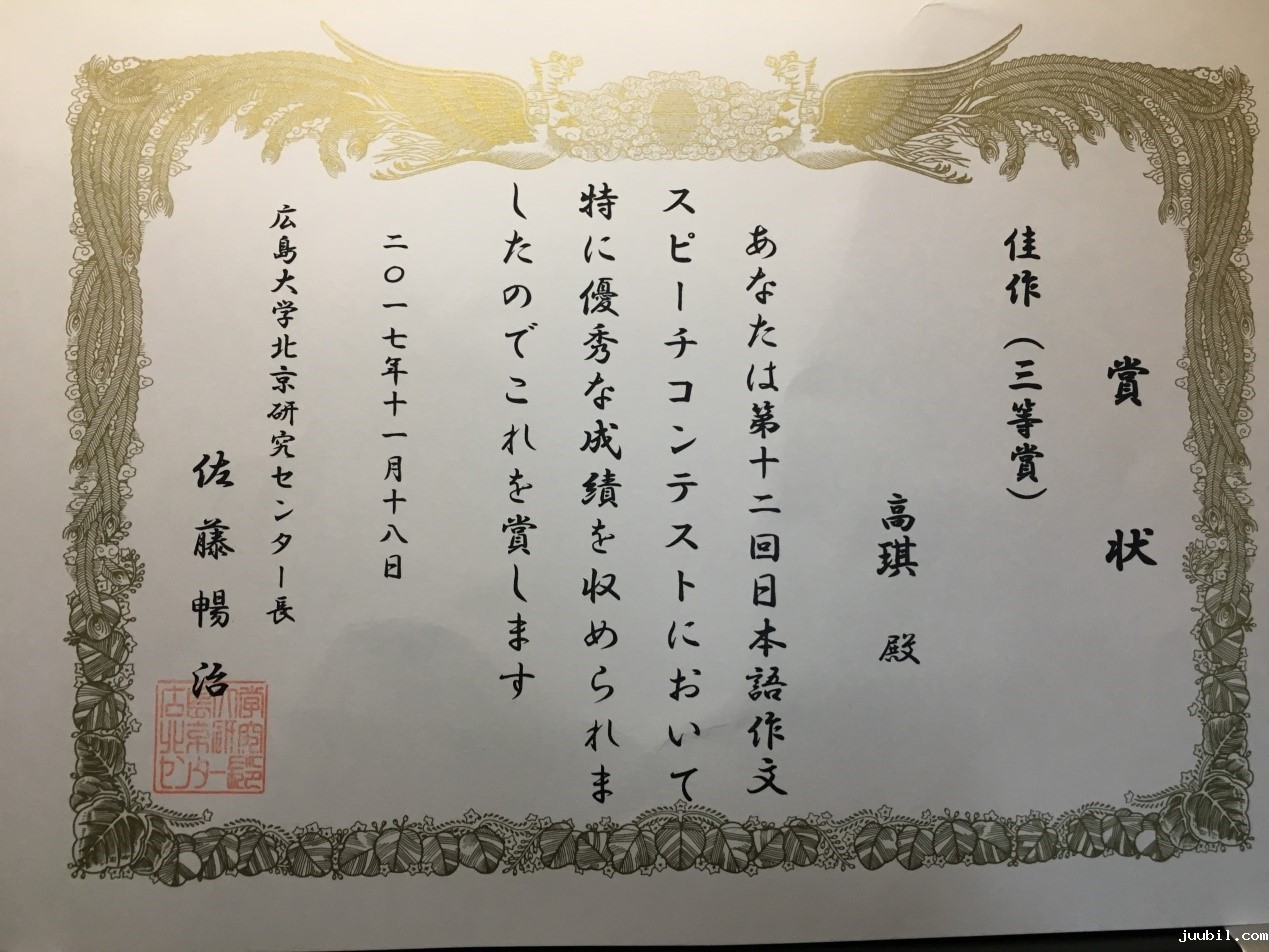 賞状
佳作（三等賞）
高琪 殿
あなたは第十二回日本語作文
スピーチコンテストにおいて
特に優秀な成績を収められま
したのでこれを賞します
二〇一七年十一月十八日
広島大学北京研究センター長
佐藤暢治
juubil.com